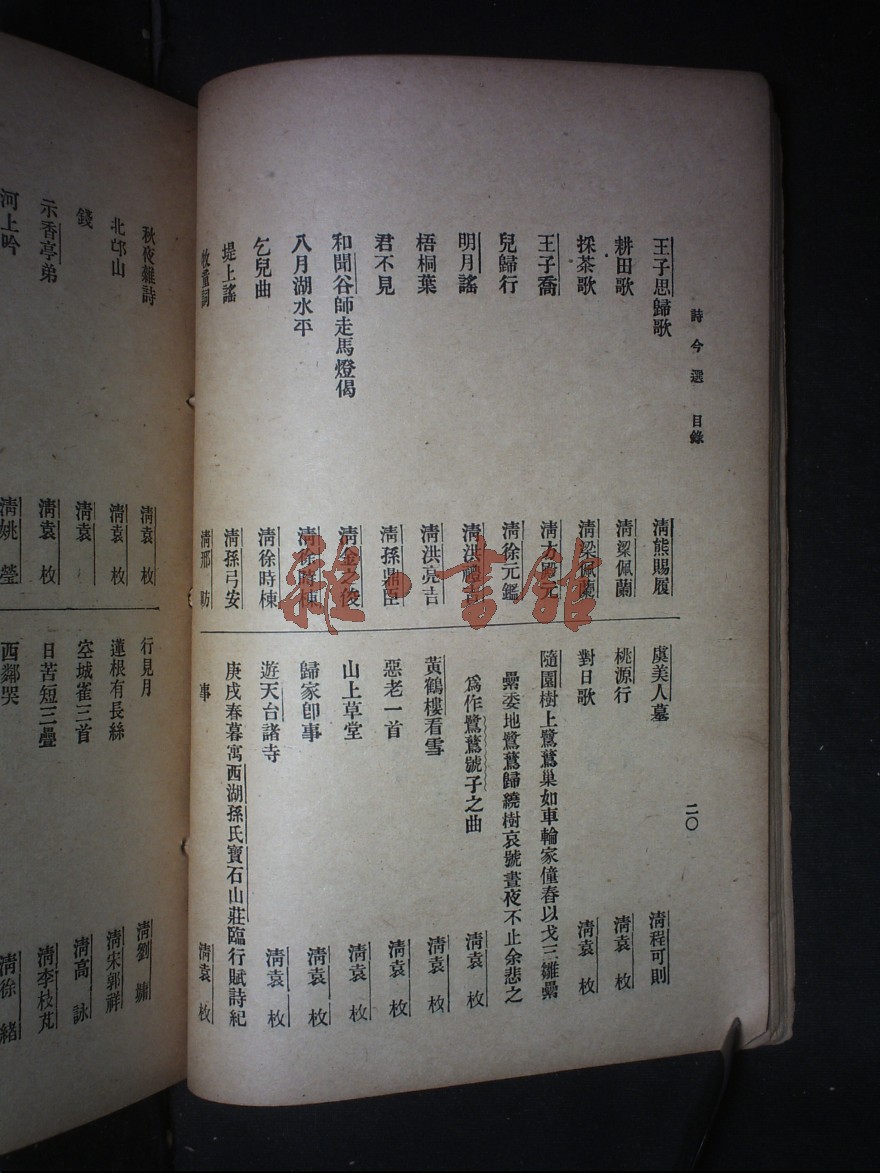 詩今選 目錄
二〇
王子思歸歌 清熊賜履
耕田歌 清梁佩蘭
採茶歌 清梁佩蘭
王子喬 清方殿元
兒歸行 清徐元鑑
明月謠 清洪禮吉
梧桐葉 清洪亮吉
君不見 清孫鼎臣
和聞谷師走馬燈偈 清金之俊
八月湖水平 清徐時棟
乞兒曲 清徐時棟
堤上謠 清孫弓安
牧童詞 清邢昉
虞美人墓 清程可則
桃源行 清袁枚
對日歌 清袁枚
隨園樹上鷺鶿巢如車輪家僮春以戈三雛纍
纍委地鷺鶿歸繞樹哀號晝夜不止余悲之
爲作鷺鶿號子之曲 清袁枚
黃鶴樓看雪 清袁枚
惡老一首 清袁枚
山上草堂 清袁枚
歸家卽事 清袁枚
遊天台諸寺 清袁枚
庚戌春暮寓西湖孫氏寶石山莊臨行賦詩紀
事 清袁枚
秋夜雜詩 清袁枚
北邙山 清袁枚
錢 清袁枚
示香亭弟 清袁枚
河上吟 清姚瑩
行見月 清劉墉
蓮根有長絲 清宋郭祥
空城雀三首 清高詠
日苦短三疊 清李枝芃
西鄰哭 清徐緒
雜·書館